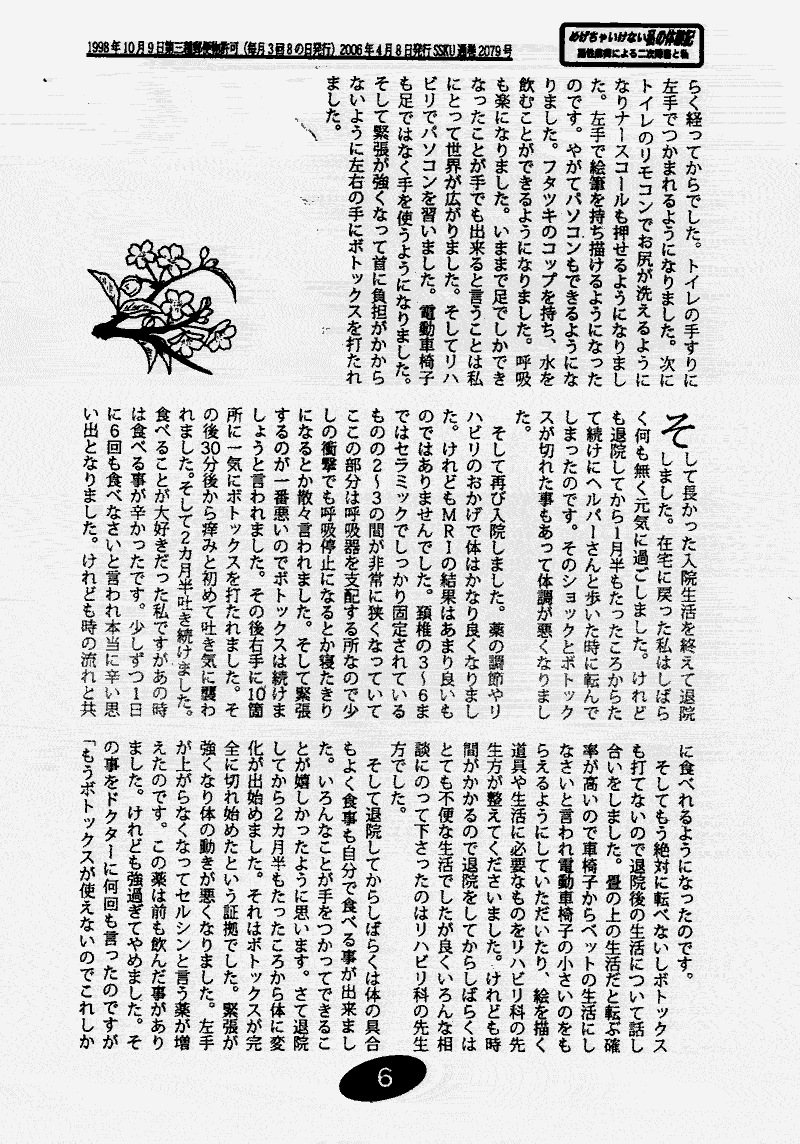 1998年10月9日第三種郵便物許可(毎月3回8の日発行)2006年4月8日発行SSKU通巻2079号
めげちゃいけない私の体験記
悪性腫瘍による二次障害と私
らく経ってからでした。トイレの手すりに
左手でつかまれるようになりました。次に
トイレのリモコンでお尻が洗えるように
なりナースコールも押せるようになりまし
た。左手で絵筆を持ち描けるようになった
のです。やがてパソコンもできるようにな
りました。フタツキのコップを持ち、水を
飲むことができるようになりました。呼吸
も楽になりました。いままで足でしかでき
なったことが手でも出来ると言うことは私
にとって世界が広がりました。そしてリハ
ビリでパソコンを習いました。電動車椅子
も足ではなく手を使うようになりました。
そして緊張が強くなって首に負担がかから
ないように左右の手にボトックスを打たれ
ました。
そして長かった入院生活を終えて退院
しました。在宅に戻った私はしばら
く何も無く元気に過ごしました。けれど
も退院してから1月半もたったころからた
て続けにヘルパーさんと歩いた時に転んで
しまったのです。そのショックとボトック
スが切れた事もあって体調が悪くなりまし
た。
そして再び入院しました。薬の調節やリ
ハビリのおかげで体はかなり良くなりまし
た。けれどもMRIの結果はあまり良いも
のではありませんでした。頚椎の3〜6ま
ではセラミックでしっかり固定されている
ものの2〜3の間が非常に狭くなっていて
ここの部分は呼吸器を支配する所なので少
しの衝撃でも呼吸停止になるとか寝たきり
になるとか散々言われました。そして緊張
するのが一番悪いのでボトックスは続けま
しょうと言われました。その後右手に10箇
所に一気にボトックスを打たれました。そ
の後30分後から痒みと初めて吐き気に襲わ
れました。そして2カ月半吐き続けました。
食べることが大好きだった私ですがあの時
は食べる事が辛かったです。少しずつ1日
に6回も食べなさいと言われ本当に辛い思
い出となりました。けれども時の流れと共
に食べれるようになったのです。
そしてもう絶対に転べないしボトックス
も打てないので退院後の生活について話し
合いをしました。畳の上の生活だと転ぶ確
率が高いので車椅子からベットの生活にし
なさいと言われ電動車椅子の小さいのをも
らえるようにしていただいたり、絵を描く
道具や生活に必要なものをリハビリ科の先
生方が整えてくださいました。けれども時
間がかかるので退院をしてからしばらくは
とても不便な生活でしたが良くいろんな相
談にのって下さったのはリハビリ科の先生
方でした。
そして退院してからしばらくは体の具合
もよく食事も自分で食べる事が出来まし
た。いろんなことが手をつかってできるこ
とが嬉しかったように思います。さて退院
してから2カ月半もたったころから体に変
化が出始めました。それはボトックスが完
全に切れ始めたという証拠でした。緊張が
強くなり体の動きが悪くなりました。左手
が上がらなくなってセルシンと言う薬が増
えたのです。この薬は前も飲んだ事があり
ました。けれども強過ぎてやめました。そ
の事をドクターに何回も言ったのですが
「もうボトックスが使えないのでこれしか
6